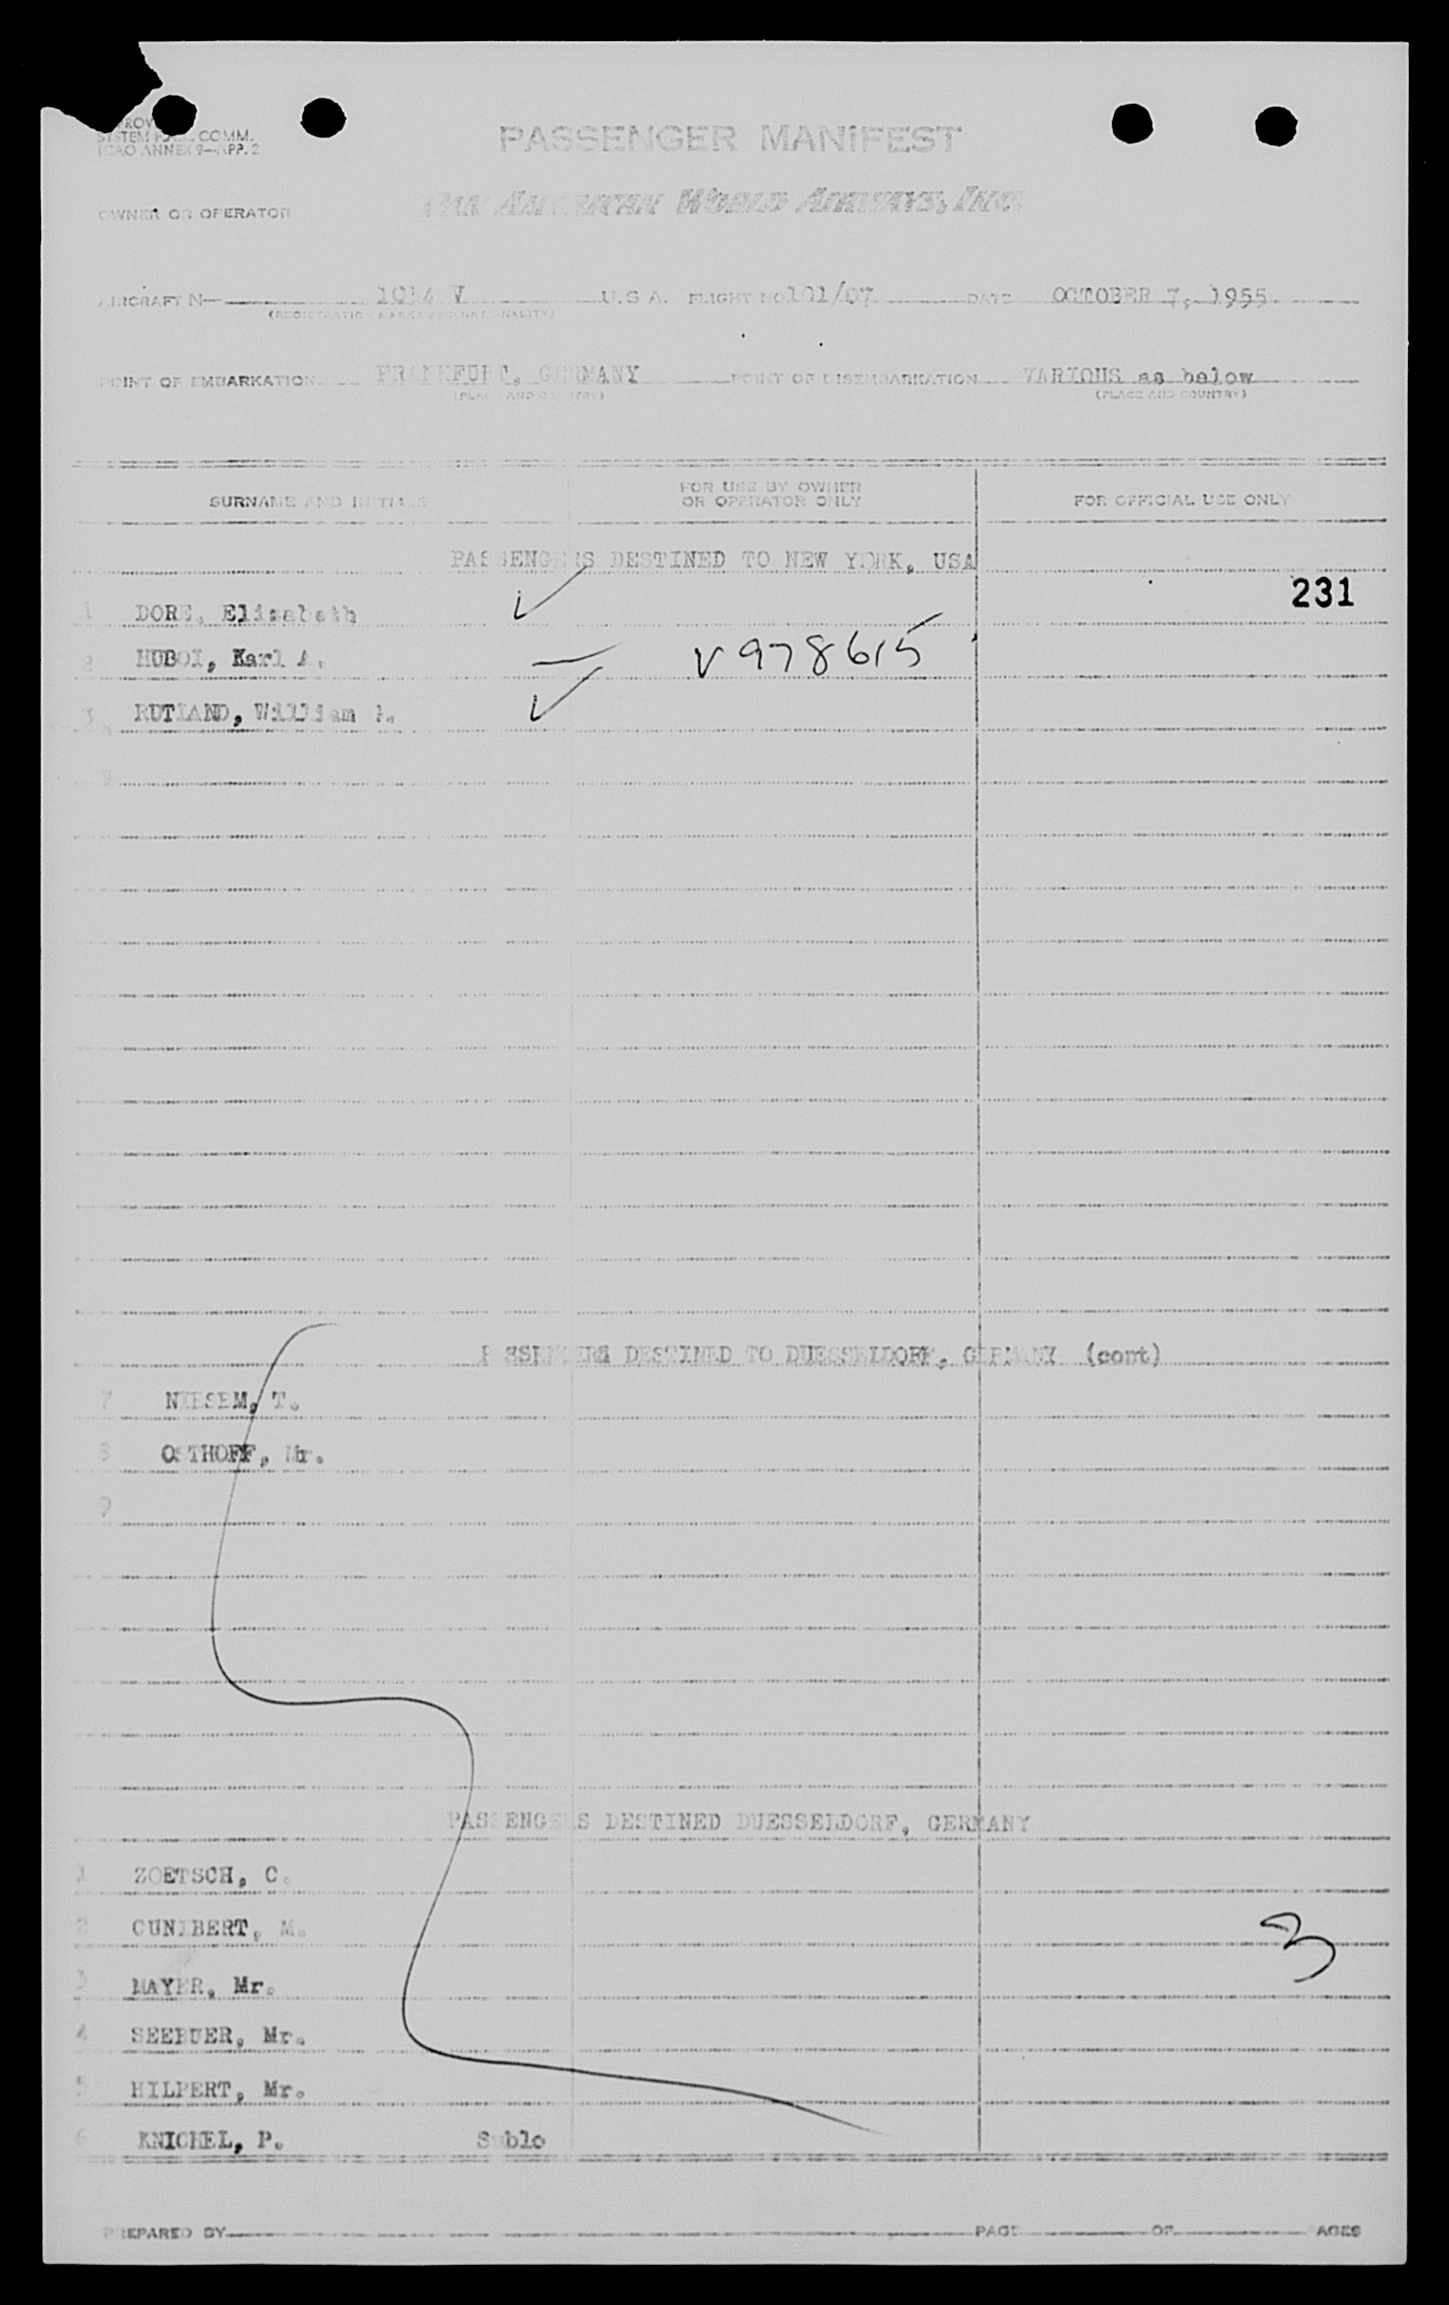 SYSTEM COMM.
ICAO ANNEX 9—APP. 2
PASSENGER MANIFEST
OWNER OR OPERATOR
PAN AMERICAN WORLD AIRWAYS, INC.
AIRCRAFT N— V U.S.A. FLIGHT NO 101/07 DATE OCTOBER 7, 1955
(REGISTRATION MARKS AND NATIONALITY)
POINT OF EMBARKATION FRANKFURT, GERMANY POINT OF DISEMBARKATION VARIOUS as below
(PLACE AND COUNTRY) (PLACE AND COUNTRY)
SURNAME AND INITIALS
FOR USE BY OWNER
OR OPERATOR ONLY
FOR OFFICIAL USE ONLY
PASSENGERS DESTINED TO NEW YORK, USA
231
1 DORE, Elisabeth
2 HUBOI, Karl A. V978615
3 RUTLAND, William
PASSENGERS DESTINED TO DUESSELDORF, GERMANY (cont)
7 NIESEM, T.
8 OSTHOFF, Mr.
9
PASSENGERS DESTINED DUESSELDORF, GERMANY
1 ZOETSCH, C.
2 CUNIBERT, M.
3
3 MAYER, Mr.
4 SEEBUER, Mr.
5 HILPERT, Mr.
6 KNICHEL, P. Sublo
PREPARED BY PAGE OF PAGES